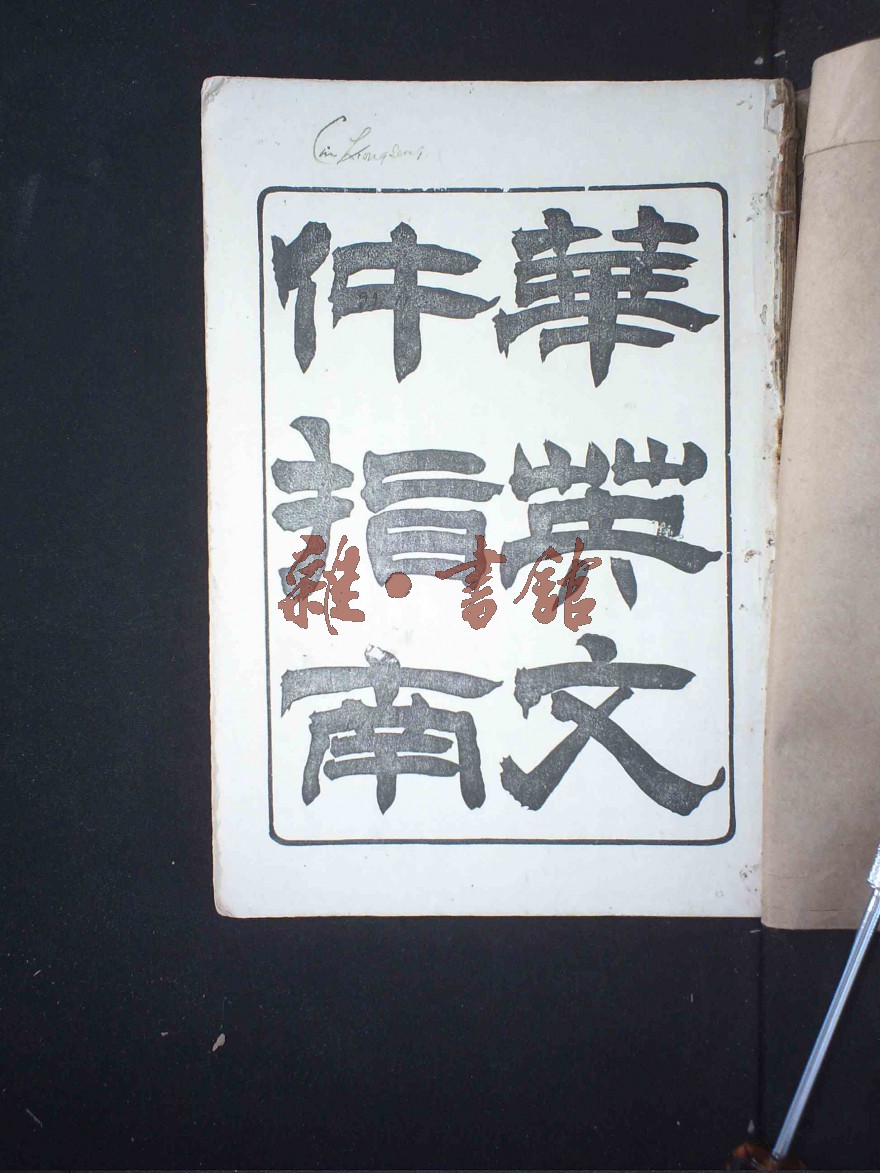 華英文
件指南
雜·書館